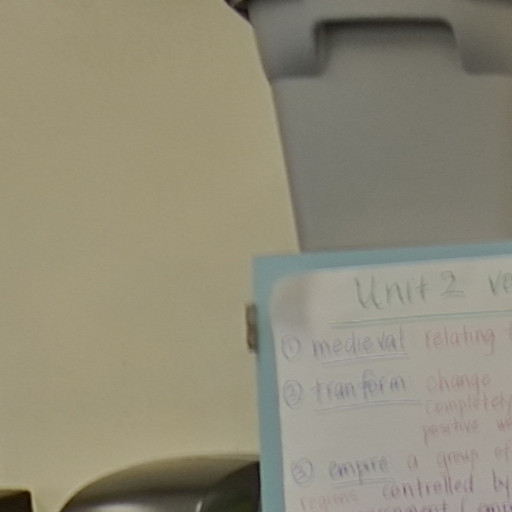 Unit 2 ve
① medieval relating
② tranform change
completely
positive
③ empire a group of
regions controlled by